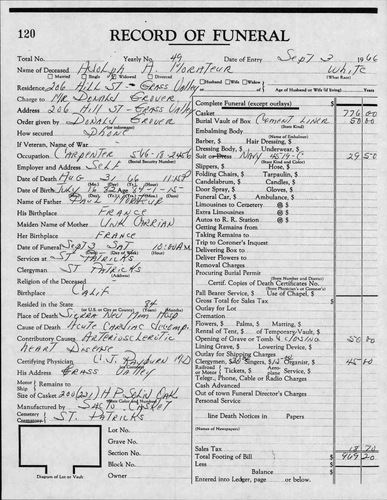 120 RECORD OF FUNERAL
Total No. Yearly No. 49 Date of Entry Sept 3 1966
Name of Deceased Adolph A. Morateur White
Married Single Widowed Divorced (What Race)
Residence 206 Hill St - Grass Valley
Husband Wife Widow Age of Husband or Wife (if living) Years
Charge to Mr Donald Grover
Address 206 Hill St - Grass Valley
Complete Funeral (except outlays) $
Casket 776 00
Order given by Donald Grover
Burial Vault of Box Cement Liner 50 00
(or informant) (State Kind)
How secured Same
Embalming Body
Barber, $ Hair Dressing, $
If Veteran, Name of War
Dressing Body, $ Underwear, $
Occupation Carpenter
(Social Security Number)
Suit or Dress Navy 4519-C 29 50
(State Kind and Color)
Employer and Address Self
Slippers, $ Hose, $
Date of Death Aug 31 66 11:45P
Folding Chairs, $ Tarpaulin, $
Candelabrum, $ Candles, $
Date of Birth July 16 82 Age 84-1-15
Door Spray, $ Gloves, $
Name of Father Paul Morateur
Funeral Car, $ Ambulance, $
His Birthplace France
Limousines to Cemetery @ $
Maiden Name of Mother Unk Orrian
Extra Limousines @ $
Autos to R. R. Station @ $
Her Birthplace France
Getting Remains from
Date of Funeral Sept 3 Sat 10:00AM
Taking Remains to
Trip to Coroner's Inquest
Services at St Patricks
Delivering Box to
Clergyman St Patricks
Deliver Flowers to
(Address)
Removal Charges
Religion of the Deceased
Procuring Burial Permit
(State Number and District)
Birthplace Calif.
Certif. Copies of Death Certificates No.
(State Physician's or Coroner's)
Pall Bearer Service, $ Use of Chapel, $
Resided in the State 84
(or U.S. in City or County) (Years) (Months)
Gross Total for Sales Tax $
Place of Death Sierra Nev Mem Hosp
Outlay for Lot
Cremation
Cause of Death Acute Cardiac Decomp.
Flowers, $ Palms, $ Matting, $
Contributory Causes Arteriosclerotic
Rental of Tent, $ of Temporary Vault, $
Heart Disease
Opening of Grave or Tomb & closing 50 00
Lining Grave, $ Lowering Device, $
Certifying Physician C.J. Rayburn MD
Outlay for Shipping Charges
Clergymen, $20 Singers, $ 12 Organist, $ 45 00
His Address Grass Valley
Railroad or Motor Tickets, $ Aeroplane Service, $
Motor Shipping Remains to
Telegr., Phone, Cable or Radio Charges
Cash Advanced
Size of Casket 206(221) HP Solid Oak
Out of town Funeral Director's Charges
Manufactured by Sacto. Casket
Personal Service
Cemetery St. Patricks
line Death Notices in Papers
(Names of Newspapers)
Lot No.
Grave No.
Section No.
Sales Tax 18 70
Block No.
Total Footing of Bill $ 969 20
Less
Owner
Balance $
Diagram of Lot or Vault
Entered into Ledger, page or below.